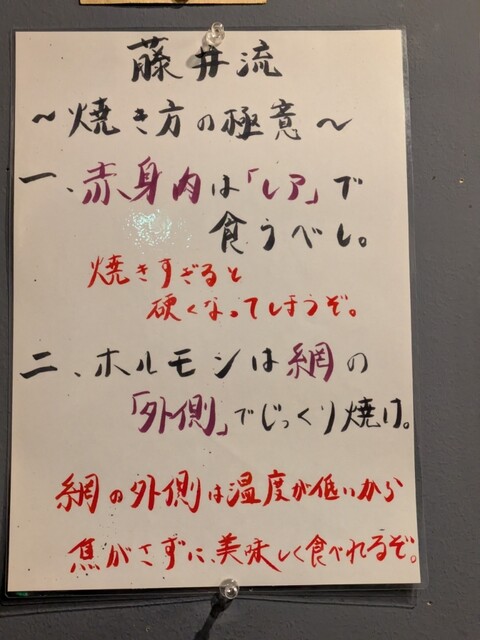 藤井流
～焼き方の極意～
一、赤身肉は「レア」で
食うべし。
焼きすぎると
硬くなってしまうぞ。
二、ホルモンは網の
「外側」でじっくり焼け。
網の外側は温度が低いから
焦がさずに、美味しく食べれるぞ。